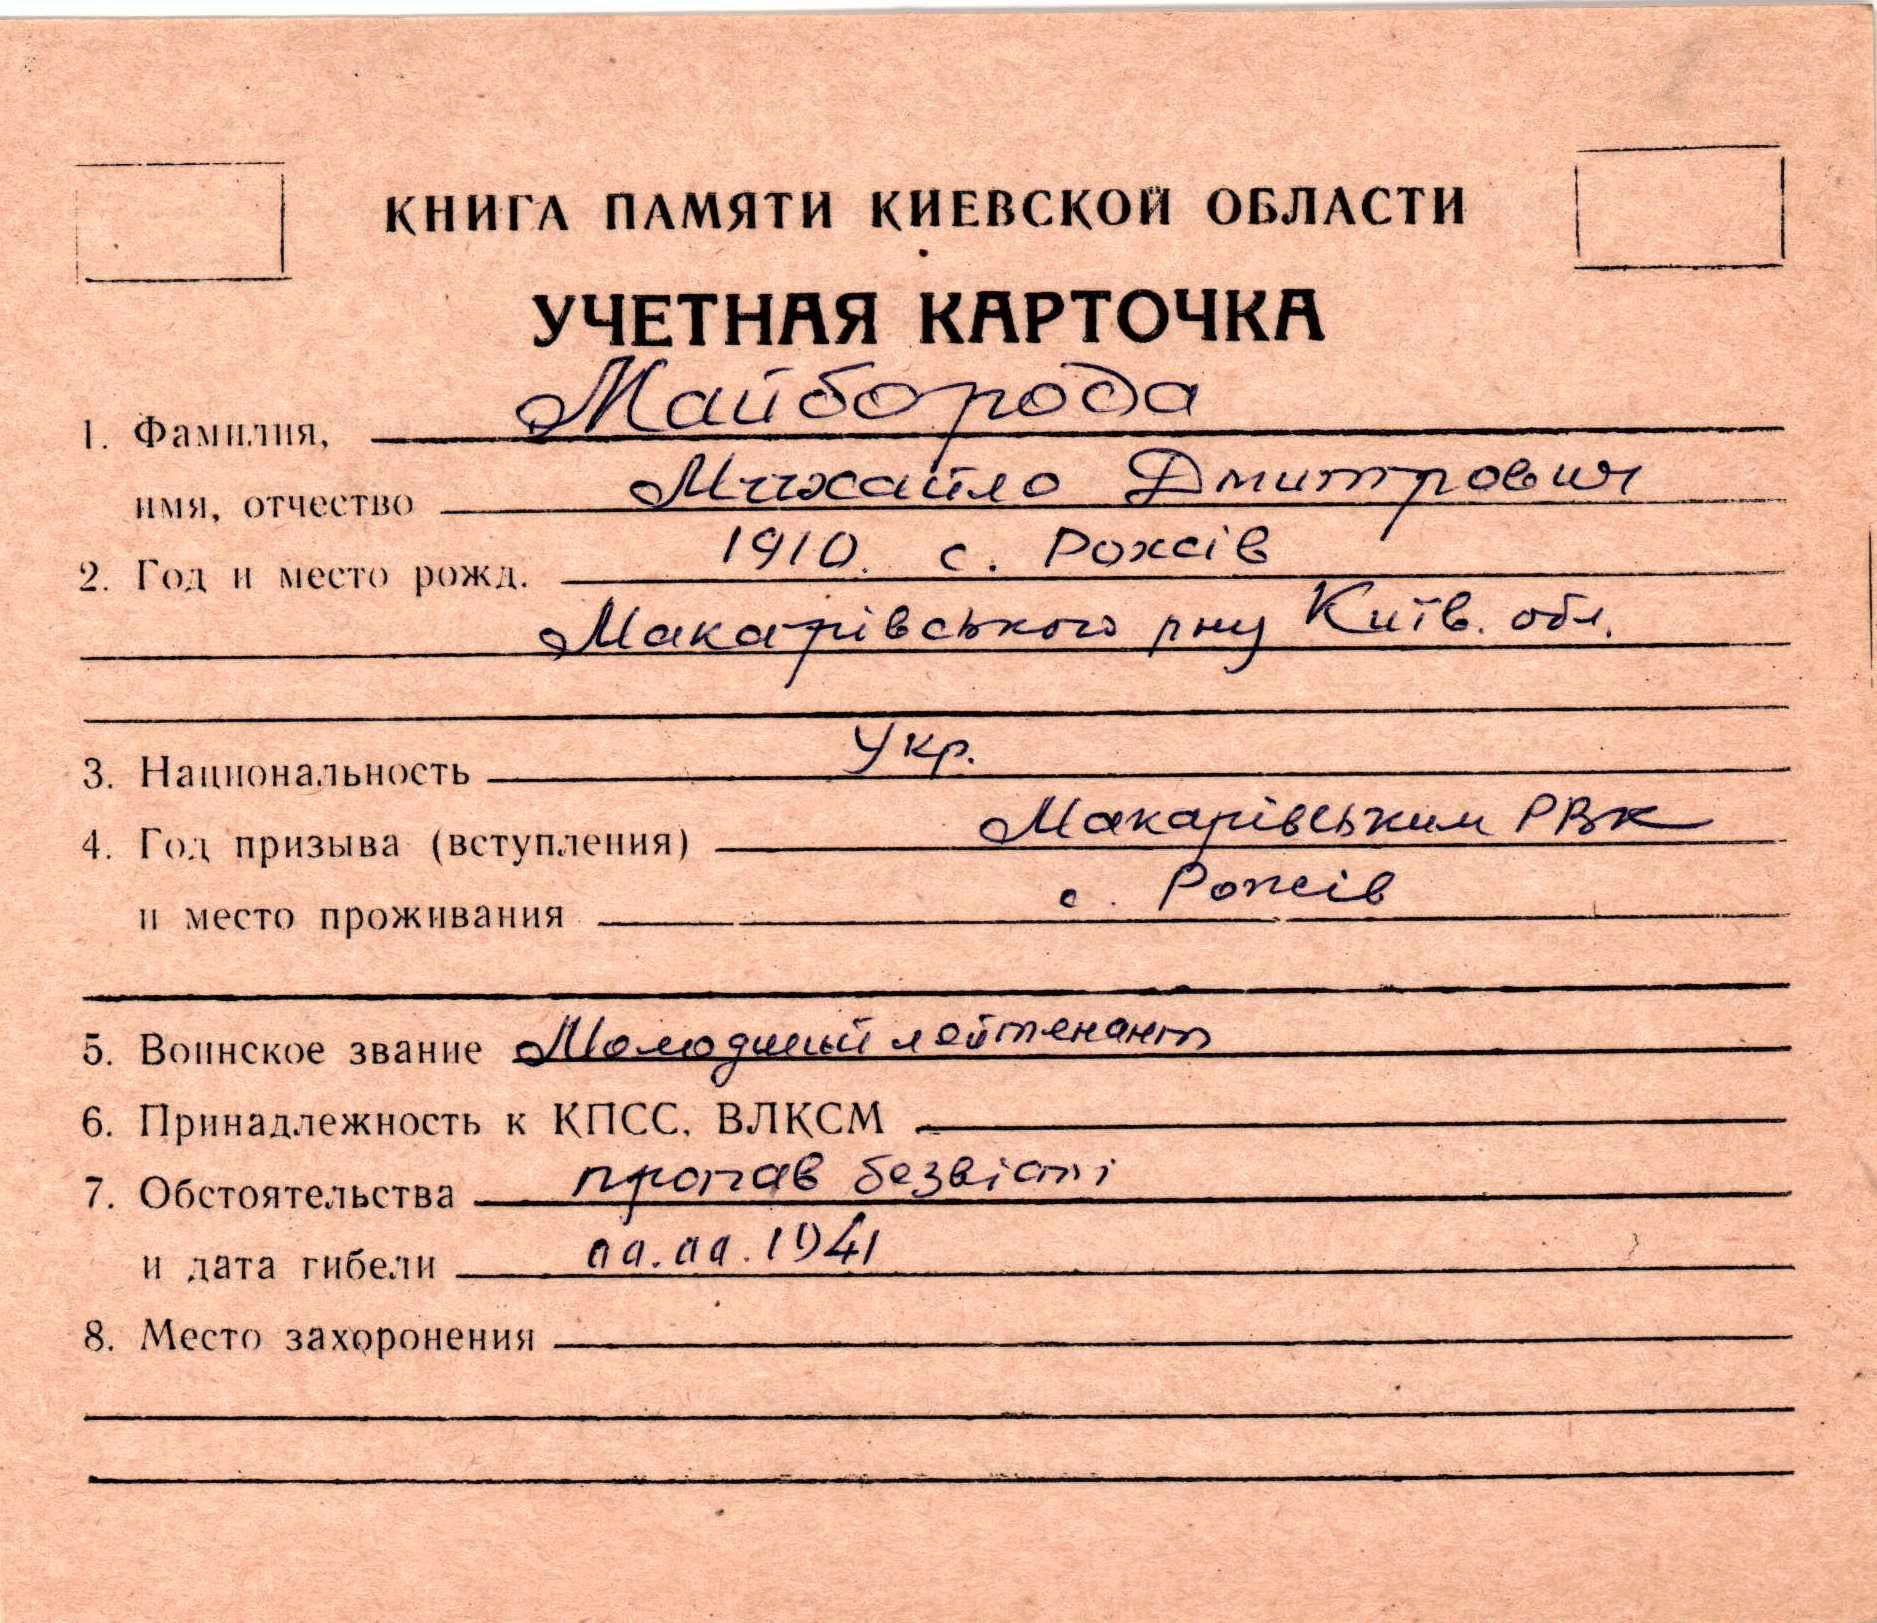 КНИГА ПАМЯТИ КИЕВСКОЙ ОБЛАСТИ
УЧЕТНАЯ КАРТОЧКА
1. Фамилия, Майборода
имя, отчество Михайло Дмитрович
2. Год и место рожд. 1910. с. Рожів
Макарівського рну Київ. обл.
3. Национальность Укр.
4. Год призыва (вступления) Макарівським РВК
и место проживания с. Рожів
5. Воинское звание Молодший лейтенант
6. Принадлежность к КПСС, ВЛКСМ
7. Обстоятельства пропав безвісті
и дата гибели 00.00.1941
8. Место захоронения